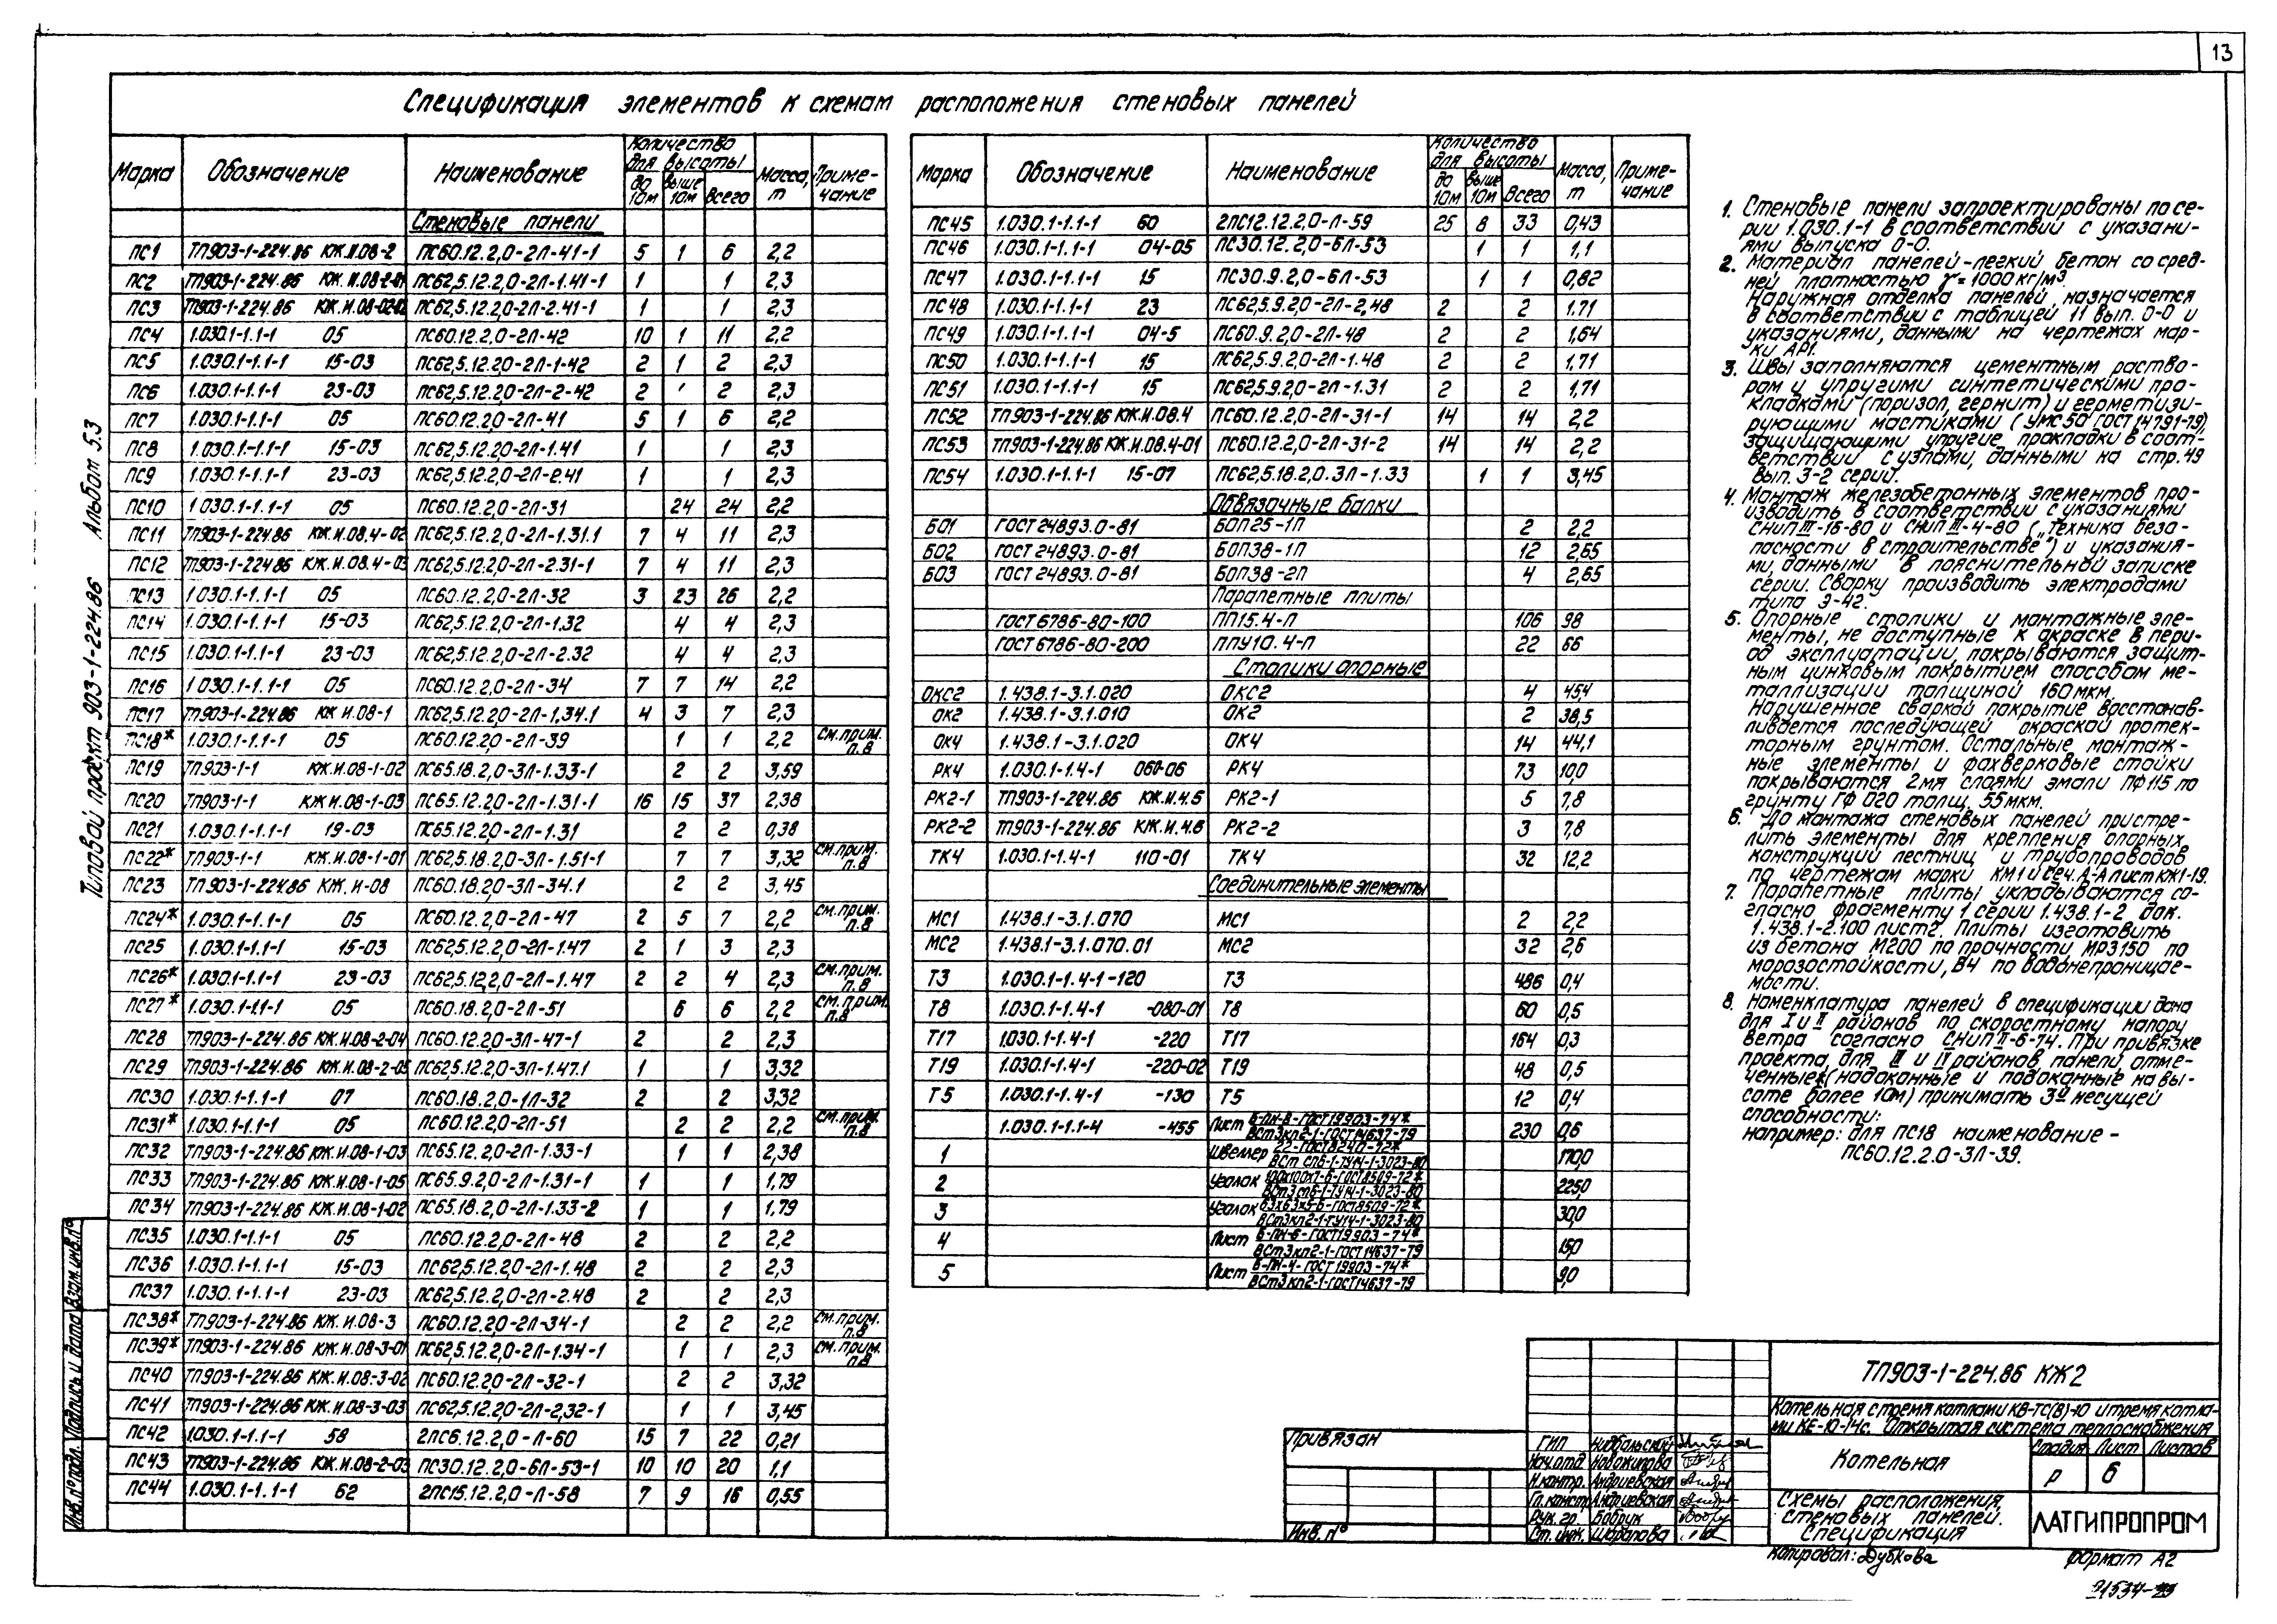 13
Спецификация элементов к схемам расположения стеновых панелей
Марка Обозначение Наименование Количество для высоты до 10м выше 10м всего Масса, т Примечание
Стеновые панели
ПС1 ТП903-1-224.86 КЖ.И.08-2 ПС60.12.2,0-2Л-41-1 5 1 6 2,2
ПС2 ТП903-1-224.86 КЖ.И.08-2-01 ПС62,5.12.2,0-2Л-1.41-1 1 1 2,3
ПС3 ТП903-1-224.86 КЖ.И.08-02-02 ПС62,5.12.2,0-2Л-2.41-1 1 1 2,3
ПС4 1.030.1-1.1-1 05 ПС60.12.2,0-2Л-42 10 1 11 2,2
ПС5 1.030.1-1.1-1 15-03 ПС62,5.12.2,0-2Л-1-42 2 1 2 2,3
ПС6 1.030.1-1.1-1 23-03 ПС62,5.12.2,0-2Л-2-42 2 2 2,3
ПС7 1.030.1-1.1-1 05 ПС60.12.2,0-2Л-41 5 1 6 2,2
ПС8 1.030.1-1.1-1 15-03 ПС62,5.12.2,0-2Л-1.41 1 1 2,3
ПС9 1.030.1-1.1-1 23-03 ПС62,5.12.2,0-2Л-2.41 1 1 2,3
ПС10 1.030.1-1.1-1 05 ПС60.12.2,0-2Л-31 24 24 2,2
ПС11 ТП903-1-224.86 КЖ.И.08.4-02 ПС62,5.12.2,0-2Л-1.31.1 7 4 11 2,3
ПС12 ТП903-1-224.86 КЖ.И.08.4-03 ПС62,5.12.2,0-2Л-2.31-1 7 4 11 2,3
ПС13 1.030.1-1.1-1 05 ПС60.12.2,0-2Л-32 3 23 26 2,2
ПС14 1.030.1-1.1-1 15-03 ПС62,5.12.2,0-2Л-1.32 4 4 2,3
ПС15 1.030.1-1.1-1 23-03 ПС62,5.12.2,0-2Л-2.32 4 4 2,3
ПС16 1.030.1-1.1-1 05 ПС60.12.2,0-2Л-34 7 7 14 2,2
ПС17 ТП903-1-224.86 КЖ.И.08-1 ПС62,5.12.2,0-2Л-1,34.1 4 3 7 2,3
ПС18* 1.030.1-1.1-1 05 ПС60.12.2,0-2Л-39 1 1 2,2 См.прим. п.8
ПС19 ТП903-1-1 КЖ.И.08-1-02 ПС65.18.2,0-3Л-1.33-1 2 2 3,59
ПС20 ТП903-1-1 КЖ.И.08-1-03 ПС65.12.2,0-2Л-1.31-1 16 15 37 2,38
ПС21 1.030.1-1.1-1 19-03 ПС65.12.2,0-2Л-1.31 2 2 0,38
ПС22* ТП903-1-1 КЖ.И.08-1-01 ПС62,5.18.2,0-3Л-1.51-1 7 7 3,32 См.прим. п.8
ПС23 ТП903-1-224.86 КЖ.И-08 ПС60.18.2,0-3Л-34.1 2 2 3,45
ПС24* 1.030.1-1.1-1 05 ПС60.12.2,0-2Л-47 2 5 7 2,2 См.прим. п.8
ПС25 1.030.1-1.1-1 15-03 ПС62,5.12.2,0-2Л-1.47 2 1 3 2,3
ПС26* 1.030.1-1.1-1 23-03 ПС62,5.12.2,0-2Л-1.47 2 2 4 2,3 См.прим. п.8
ПС27* 1.030.1-1.1-1 05 ПС60.18.2,0-2Л-51 6 6 2,2 См.прим. п.8
ПС28 ТП903-1-224.86 КЖ.И.08-2-04 ПС60.12.2,0-3Л-47-1 2 2 2,3
ПС29 ТП903-1-224.86 КЖ.И.08-2-05 ПС62,5.12.2,0-3Л-1.47.1 1 1 3,32
ПС30 1.030.1-1.1-1 07 ПС60.18.2,0-1Л-32 2 2 3,32
ПС31* 1.030.1-1.1-1 05 ПС60.12.2,0-2Л-51 2 2 2,2 См.прим. п.8
ПС32 ТП903-1-224.86 КЖ.И.08-1-03 ПС65.12.2,0-2Л-1.33-1 1 1 2,38
ПС33 ТП903-1-224.86 КЖ.И.08-1-05 ПС65.9.2,0-2Л-1.31-1 1 1 1,79
ПС34 ТП903-1-224.86 КЖ.И.08-1-02 ПС65.18.2,0-2Л-1.33-2 1 1 1,79
ПС35 1.030.1-1.1-1 05 ПС60.12.2,0-2Л-48 2 2 2,2
ПС36 1.030.1-1.1-1 15-03 ПС62,5.12.2,0-2Л-1.48 2 2 2,3
ПС37 1.030.1-1.1-1 23-03 ПС62,5.12.2,0-2Л-2.48 2 2 2,3
ПС38* ТП903-1-224.86 КЖ.И.08-3 ПС60.12.2,0-2Л-34-1 2 2 2,2 См.прим. п.8
ПС39* ТП903-1-224.86 КЖ.И.08-3-01 ПС62,5.12.2,0-2Л-1.34-1 1 1 2,3 См.прим. п.8
ПС40 ТП903-1-224.86 КЖ.И.08-3-02 ПС60.12.2,0-2Л-32-1 2 2 3,32
ПС41 ТП903-1-224.86 КЖ.И.08-3-03 ПС62,5.12.2,0-2Л-2,32-1 1 1 3,45
ПС42 1.030.1-1.1-1 58 2ПС6.12.2,0-Л-60 15 7 22 0,21
ПС43 ТП903-1-224.86 КЖ.И.08-2-03 ПС30.12.2,0-6Л-53-1 10 10 20 1,1
ПС44 1.030.1-1.1-1 62 2ПС15.12.2,0-Л-58 7 9 16 0,55
Марка Обозначение Наименование Количество для высоты до 10м выше 10м всего Масса, т Примечание
ПС45 1.030.1-1.1-1 60 2ПС12.12.2,0-Л-59 25 8 33 0,43
ПС46 1.030.1-1.1-1 04-05 ПС30.12.2,0-6Л-53 1 1 1,1
ПС47 1.030.1-1.1-1 15 ПС30.9.2,0-6Л-53 1 1 0,82
ПС48 1.030.1-1.1-1 23 ПС62,5.9.2,0-2Л-2,48 2 2 1,71
ПС49 1.030.1-1.1-1 04-5 ПС60.9.2,0-2Л-48 2 2 1,64
ПС50 1.030.1-1.1-1 15 ПС62,5.9.2,0-2Л-1.48 2 2 1,71
ПС51 1.030.1-1.1-1 15 ПС62,5.9.2,0-2Л-1.31 2 2 1,71
ПС52 ТП903-1-224.86 КЖ.И.08.4 ПС60.12.2,0-2Л-31-1 14 14 2,2
ПС53 ТП903-1-224.86 КЖ.И.08.4-01 ПС60.12.2,0-2Л-31-2 14 14 2,2
ПС54 1.030.1-1.1-1 15-07 ПС62,5.18.2,0.3Л-1.33 1 1 3,45
Обвязочные балки
БО1 ГОСТ 24893.0-81 БОП25-1П 2 2,2
БО2 ГОСТ 24893.0-81 БОП38-1П 12 2,65
БО3 ГОСТ 24893.0-81 БОП38-2П 4 2,65
Парапетные плиты
ГОСТ 6786-80-100 ПП15.4-П 106 98
ГОСТ 6786-80-200 ППУ10.4-П 22 66
Столики опорные
ОКС2 1.438.1-3.1.020 ОКС2 4 45,4
ОК2 1.438.1-3.1.010 ОК2 2 38,5
ОК4 1.438.1-3.1.020 ОК4 14 44,1
РК4 1.030.1-1.4-1 060-06 РК4 73 10,0
РК2-1 ТП903-1-224.86 КЖ.И.4.5 РК2-1 5 7,8
РК2-2 ТП903-1-224.86 КЖ.И.4.6 РК2-2 3 7,8
ТК4 1.030.1-1.4-1 110-01 ТК4 32 12,2
Соединительные элементы
МС1 1.438.1-3.1.070 МС1 2 2,2
МС2 1.438.1-3.1.070.01 МС2 32 2,6
Т3 1.030.1-1.4-1-120 Т3 486 0,4
Т8 1.030.1-1.4-1 -080-01 Т8 60 0,5
Т17 1.030.1-1.4-1 -220 Т17 164 0,3
Т19 1.030.1-1.4-1 -220-02 Т19 48 0,5
Т5 1.030.1-1.4-1 -130 Т5 12 0,4
1.030.1-1.1-4 -455 Лист Б-ПН-8-ГОСТ19903-74* ВСт3кп2-1-ГОСТ14637-79 230 0,6
1 Швеллер 22-ГОСТ8240-72* ВСт сп6-1-ТУ14-1-3023-80 170,0
2 Уголок 100х100х7-Б-ГОСТ8509-72* ВСт3сп6-1-ТУ14-1-3023-80 225,0
3 Уголок 63х63х5-Б-ГОСТ8509-72* ВСт3кп2-1-ТУ14-1-3023-80 30,0
4 Лист Б-ПН-6-ГОСТ19903-74* ВСт3кп2-1-ГОСТ14637-79 15,0
5 Лист Б-ПН-4-ГОСТ19903-74* ВСт3кп2-1-ГОСТ14637-79 9,0
1. Стеновые панели запроектированы по се-
рии 1.030.1-1 в соответствий с указани-
ями выпуска 0-0.
2. Материал панелей-легкий бетон со сред-
ней плотностью γ=1000кг/м³.
Наружная отделка панелей, назначается
в соответствии с таблицей 11 вып. 0-0 и
указаниями, данными на чертежах мар-
ки АР1.
3. Швы заполняются цементным раство-
ром и упругими синтетическими про-
кладками (поризол, гернит) и герметизи-
рующими мастиками (УМС50 ГОСТ 14791-79),
защищающими упругие прокладки в соот-
ветствии с узлами, данными на стр.49
вып. 3-2 серий.
4. Монтаж железобетонных элементов про-
изводить в соответствии с указаниями
СНиП III-16-80 и СНиП III-4-80 („Техника беза-
пасности в строительстве") и указания-
ми, данными в пояснительной записке
серии. Сварку производить электродами
типа Э-42.
5. Опорные столики и монтажные эле-
менты, не доступные к окраске в пери-
од эксплуатации, покрываются защит-
ным цинковым покрытием способом ме-
таллизации толщиной 160мкм.
Нарушенное сваркой покрытие восстанав-
ливается последующей окраской протек-
торным грунтом. Остальные монтаж-
ные элементы и фахверковые стойки
покрываются 2мя слоями эмали ПФ115 по
грунту ГФ 020 толщ. 55мкм.
6. До монтажа стеновых панелей пристре-
лить элементы для крепления опорных
конструкций лестниц и трубопроводов
по чертежам марки КМ1 и сеч. А-А лист КЖ1-19.
7. Парапетные плиты укладываются со-
гласно фрагменту 1 серии 1.438.1-2 док.
1.438.1-2.100 лист2. Плиты изготовить
из бетона М200 по прочности, МРЗ150 по
морозостойкости, В4 по водонепроницае-
мости.
8. Номенклатура панелей в спецификации дана
для I и II районов по скоростному напору
ветра согласно СНиП II-6-74. При привязке
проекта для III и IV районов панели, отме-
ченные* (надоконные и подоконные на вы-
соте более 10м) принимать 3й несущей
способности:
например: для ПС18 наименование -
ПС60.12.2.0-3Л-39.
Типовой проект 903-1-224.86 Альбом 5.3
Инв.№подл. Подпись и дата Взам.инв.№
Привязан
Инв.№
ГИП
Нач.отд. Новожилова
Н.контр. Андриевская
Гл.констр. Андриевская
Рук.гр. Бобрук
Ст.инж. Шарапова
ТП903-1-224.86 КЖ2
Котельная с тремя котлами КВ-ТС(В)-10 и тремя котла-
ми КЕ-10-14с. Открытая система теплоснабжения
Котельная
Стадия Лист Листов
Р 6
Схемы расположения
стеновых панелей.
Спецификация
ЛАТГИПРОПРОМ
Копировал: Дубкова Формат А2